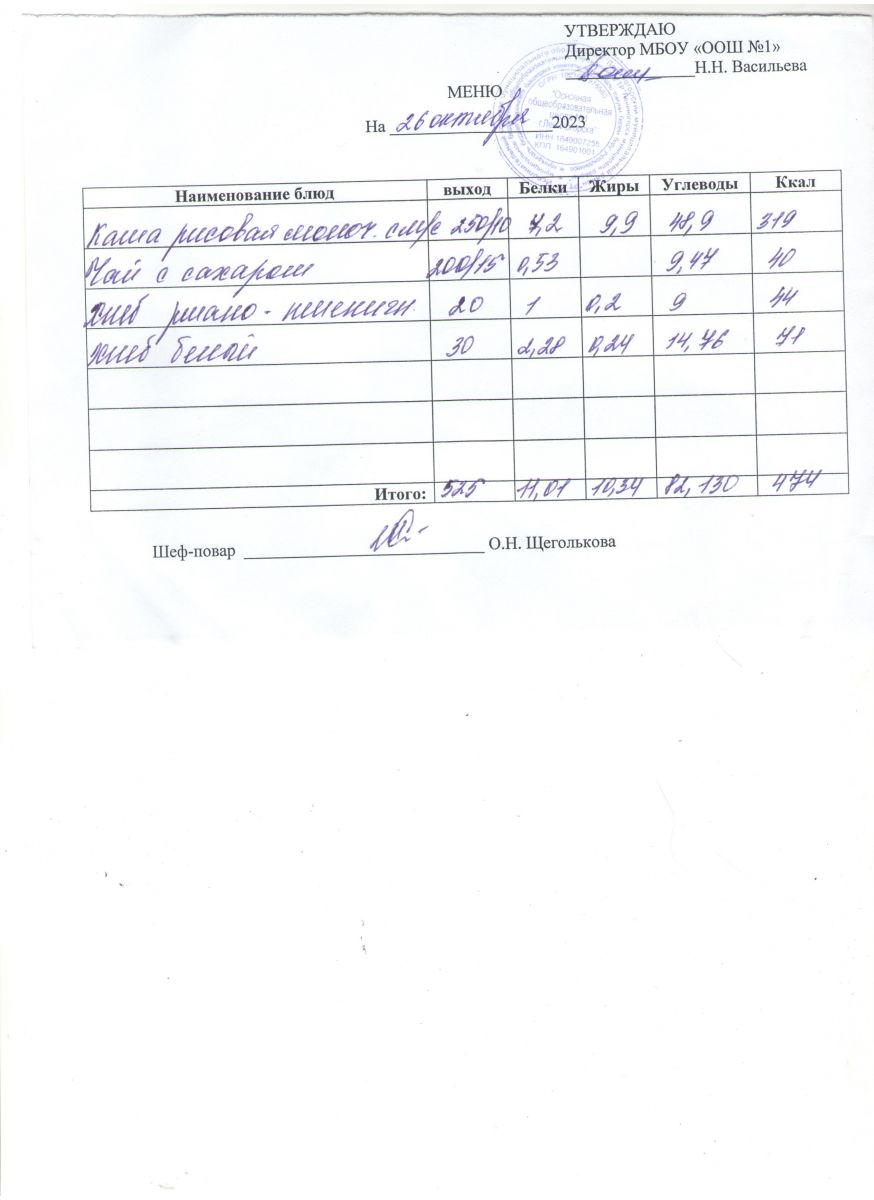 УТВЕРЖДАЮ
Директор МБОУ «ООШ №1»
Н.Н. Васильева
МЕНЮ
На 26 октября 2023
"Основная
общеобразовательная
ИНН 1649007256
КПП 164901001
Наименование блюд выход Белки Жиры Углеводы Ккал
Каша рисовая молоч. с м/с 250/10 7,2 9,9 48,9 319
Чай с сахаром 200/15 0,53 9,47 40
Хлеб ржано-пшеничн 20 1 0,2 9 44
Хлеб белый 30 2,28 0,24 14,76 71
Итого: 525 11,01 10,34 82,130 474
Шеф-повар О.Н. Щеголькова